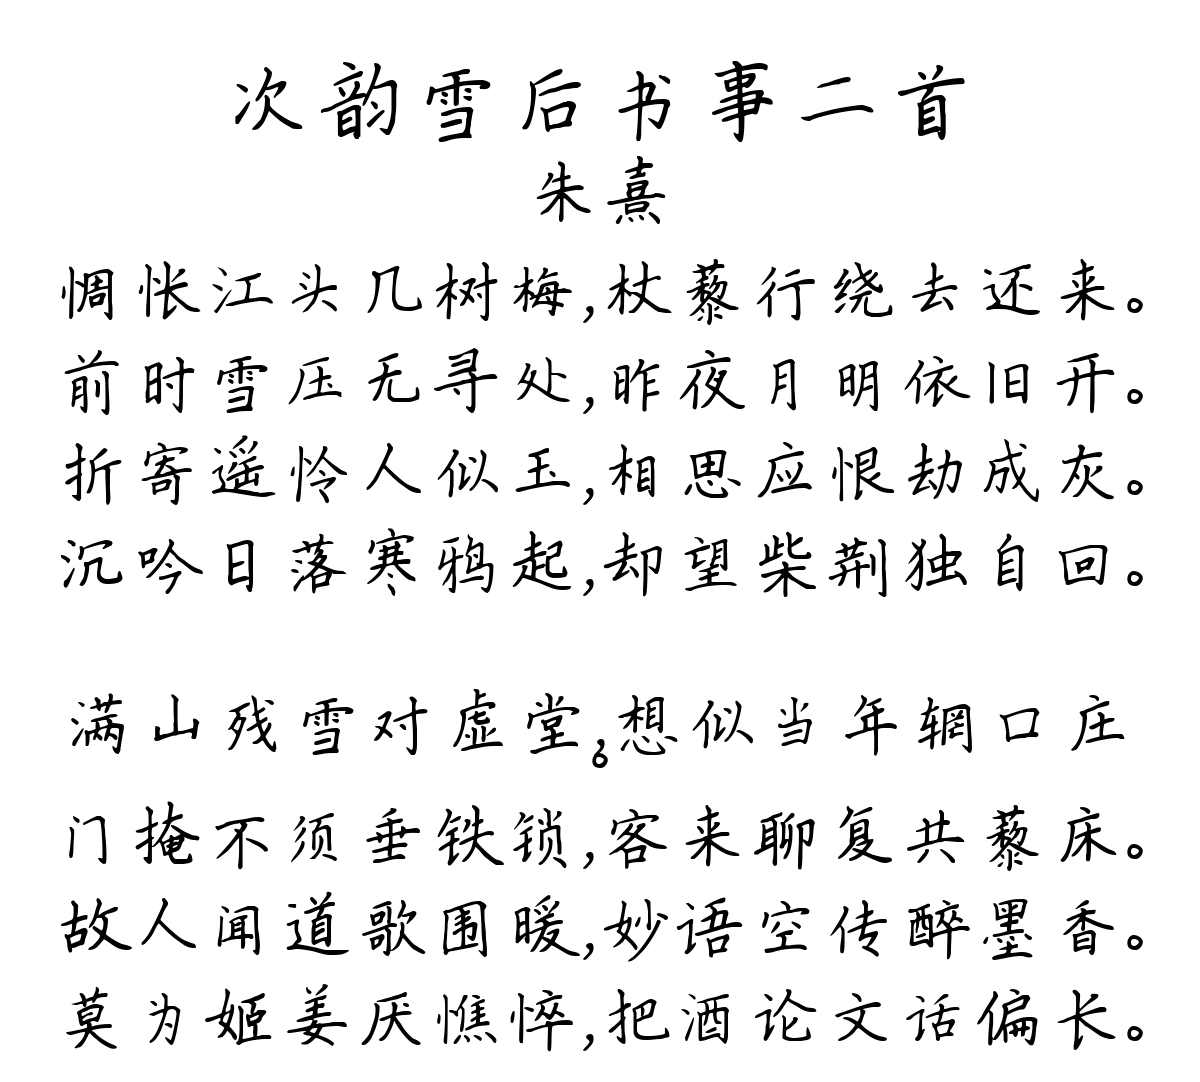 次韵雪后书事二首
朱熹
惆怅江头几树梅,杖藜行绕去还来。
前时雪压无寻处,昨夜月明依旧开。
折寄遥怜人似玉,相思应恨劫成灰。
沉吟日落寒鸦起,却望柴荆独自回。
满山残雪对虚堂。想似当年辋口庄
门掩不须垂铁锁,客来聊复共藜床。
故人闻道歌围暖,妙语空传醉墨香。
莫为姬姜厌憔悴,把酒论文话偏长。